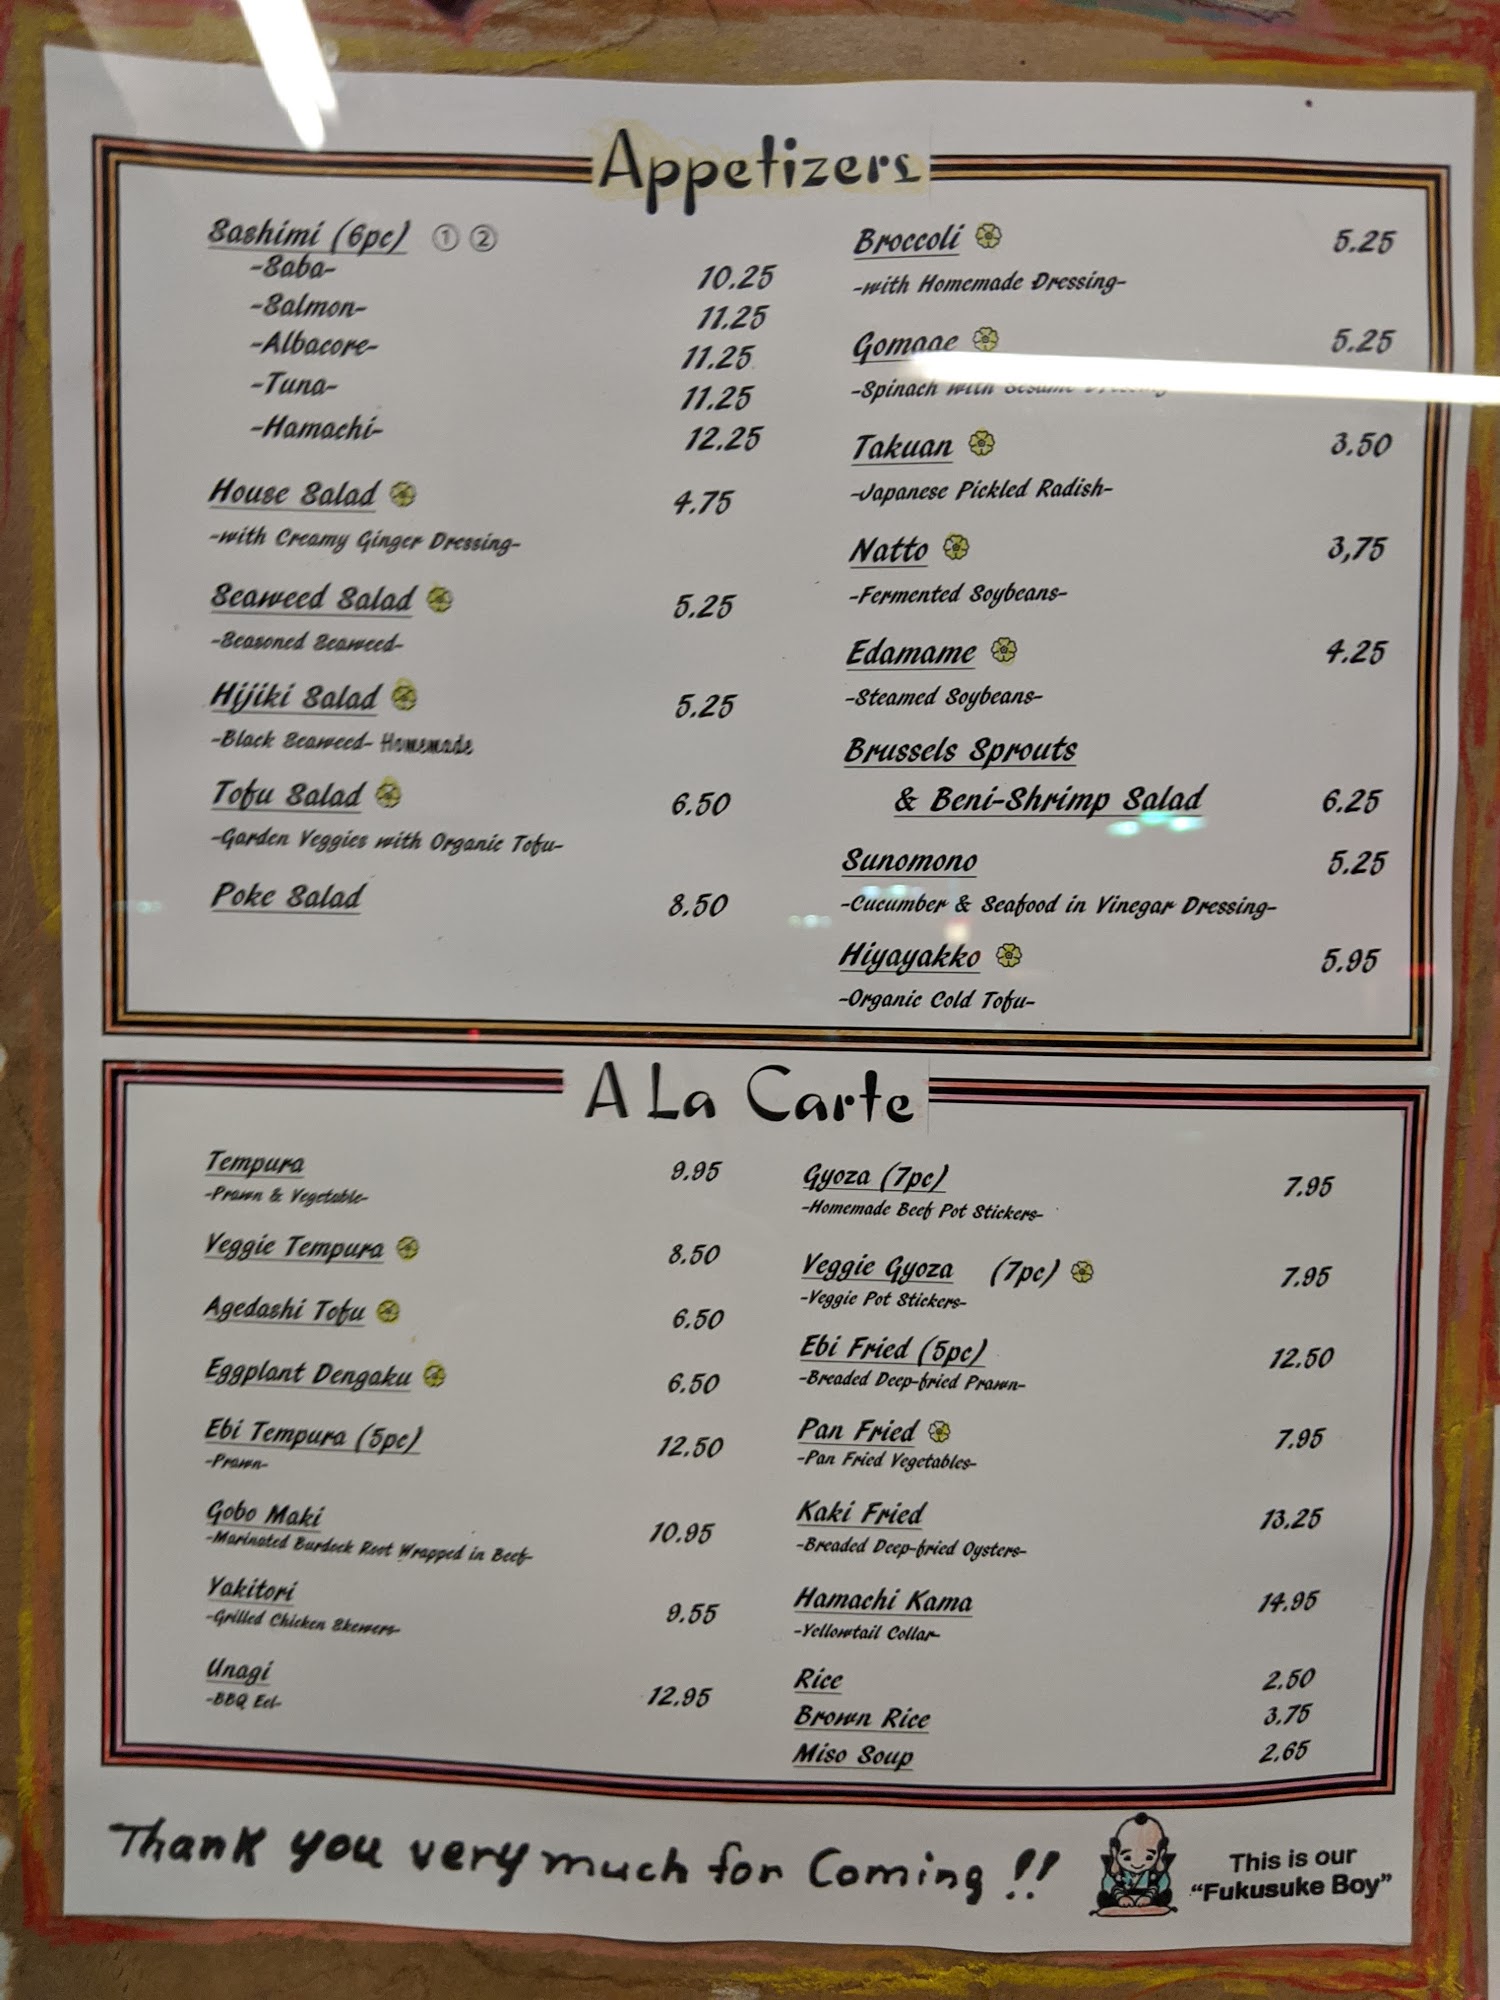 Appetizers
Sashimi (6pc) ① ②
-Saba- 10.25
-Salmon- 11.25
-Albacore- 11.25
-Tuna- 11.25
-Hamachi- 12.25
House Salad 4.75
-with Creamy Ginger Dressing-
Seaweed Salad 5.25
-Seasoned Seaweed-
Hijiki Salad 5.25
-Black Seaweed- Homemade
Tofu Salad 6.50
-Garden Veggies with Organic Tofu-
Poke Salad 8.50
Broccoli 5.25
-with Homemade Dressing-
Gomaae 5.25
-Spinach with Sesame Dressing
Takuan 3.50
-Japanese Pickled Radish-
Natto 3,75
-Fermented Soybeans-
Edamame 4.25
-Steamed Soybeans-
Brussels Sprouts
& Beni-Shrimp Salad 6.25
Sunomono 5.25
-Cucumber & Seafood in Vinegar Dressing-
Hiyayakko 5.95
-Organic Cold Tofu-
A La Carte
Tempura 9.95
-Prawn & Vegetable-
Veggie Tempura 8.50
Agedashi Tofu 6.50
Eggplant Dengaku 6.50
Ebi Tempura (5pc) 12.50
-Prawn-
Gobo Maki 10.95
-Marinated Burdock Root Wrapped in Beef-
Yakitori 9.55
-Grilled Chicken Skewers-
Unagi 12.95
-BBQ Eel-
Gyoza (7pc) 7.95
-Homemade Beef Pot Stickers-
Veggie Gyoza (7pc) 7.95
-Veggie Pot Stickers-
Ebi Fried (5pc) 12.50
-Breaded Deep-fried Prawn-
Pan Fried 7.95
-Pan Fried Vegetables-
Kaki Fried 13.25
-Breaded Deep-fried Oysters-
Hamachi Kama 14.95
-Yellowtail Collar-
Rice 2.50
Brown Rice 3.75
Miso Soup 2.65
Thank you very much for Coming !!
This is our
"Fukusuke Boy"